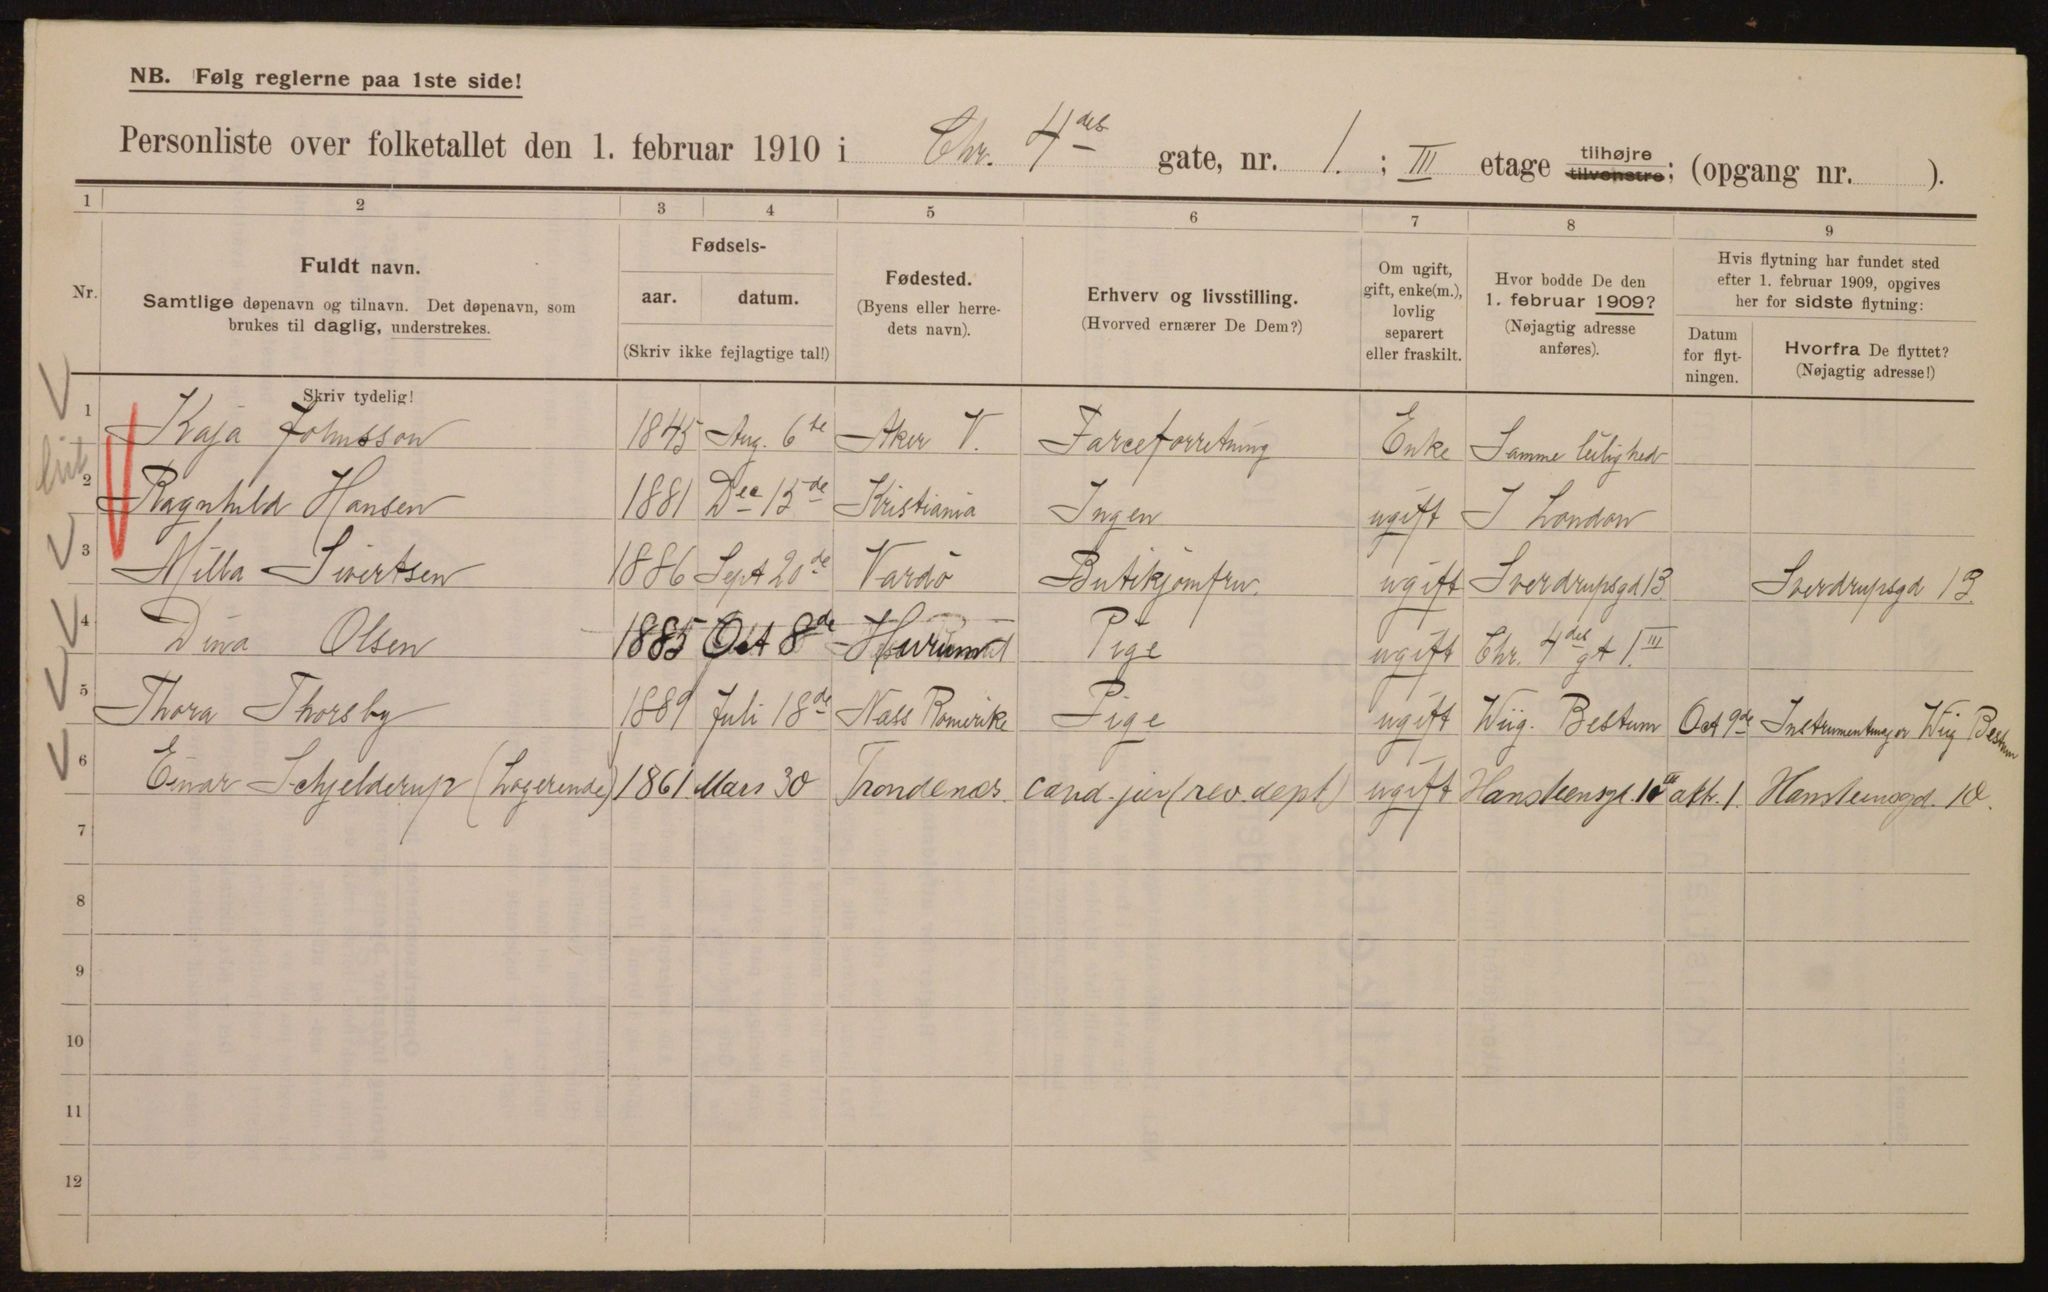 NB. Følg reglerne paa 1ste side!
Personliste over folketallet den 1. februar 1910 i Chr. 4des gate, nr. 1. ; III etage tilhøjre tilvenstre; (opgang nr. ).
1 2 3 4 5 6 7 8 9
Nr.
Fuldt navn.
Samtlige døpenavn og tilnavn. Det døpenavn, som
brukes til daglig, understrekes.
Skriv tydelig!
Fødsels-
aar. datum.
(Skriv ikke fejlagtige tal!)
Fødested.
(Byens eller herre-
dets navn).
Erhverv og livsstilling.
(Hvorved ernærer De Dem?)
Om ugift,
gift, enke(m.),
lovlig
separert
eller fraskilt.
Hvor bodde De den
1. februar 1909?
(Nøjagtig adresse
anføres).
Hvis flytning har fundet sted
efter 1. februar 1909, opgives
her for sidste flytning:
Datum
for flyt-
ningen.
Hvorfra De flyttet?
(Nøjagtig adresse!)
1 Kaja Johnsson 1845 Aug. 6te Aker V. Farveforretning Enke Samme leilighed
2 Ragnhild Hansen 1881 Dec 15de Kristiania Ingen ugift I London
3 Milla Sivertsen 1886 Sept 20de Vardö Butikjomfru. ugift Sverdrupsgd 13 Sverdrupsgd 13.
4 Dina Olsen 1885 Oct 8de Pige ugift Chr. 4des gt 1. III
5 Thora Thorsby 1889 Juli 18de Næss Romerike Pige ugift Wiig. Bestum Oct 9de Instrumentmager Wiig Bestum
6 Einar Schjelderup (Logerende) 1861. Mars 30 Trondenæs. cand. jur (rev. dept) ugift Hansteensgd. 10 III okt. 1 Hansteensgd. 10.
7
8
9
10
11
12